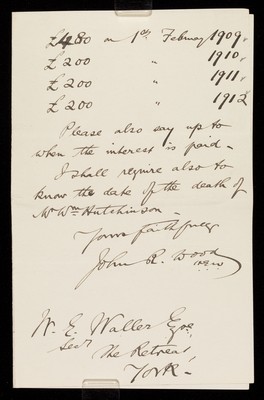 £480 on 1st February 1909.
£200 " 1910.
£200 " 1911.
£200 " 1912
Please also say up to
when the interest is paid –
I shall require also to
know the date of the death of
Mr Wm Hutchinson –
Yours faithfully
John R. Wood
W. E. Waller Esq,
Secy
The Retreat,
York –